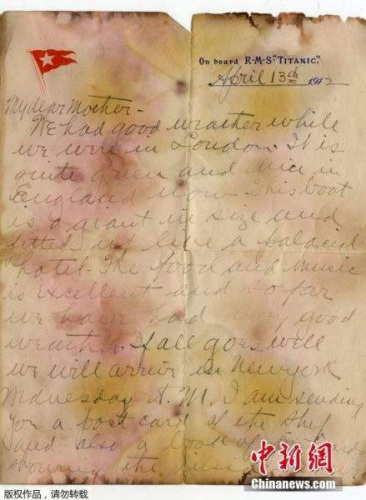 On board R·M·S "TITANIC".
April 13th 1912
My dear Mother-
We had good weather while
we were in London. It is
quite green and nice in
England now. This boat
is a giant in size and
fitted up like a palacial
hotel. The food and music
is excellent and so far
we have had very good
weather. If all goes well
we will arrive in New York
Wednesday A.M. I am sending
you a post card of the ship
and also a book of
showing the inside
中新網
www.chinanews.com
版权作品，请勿转载